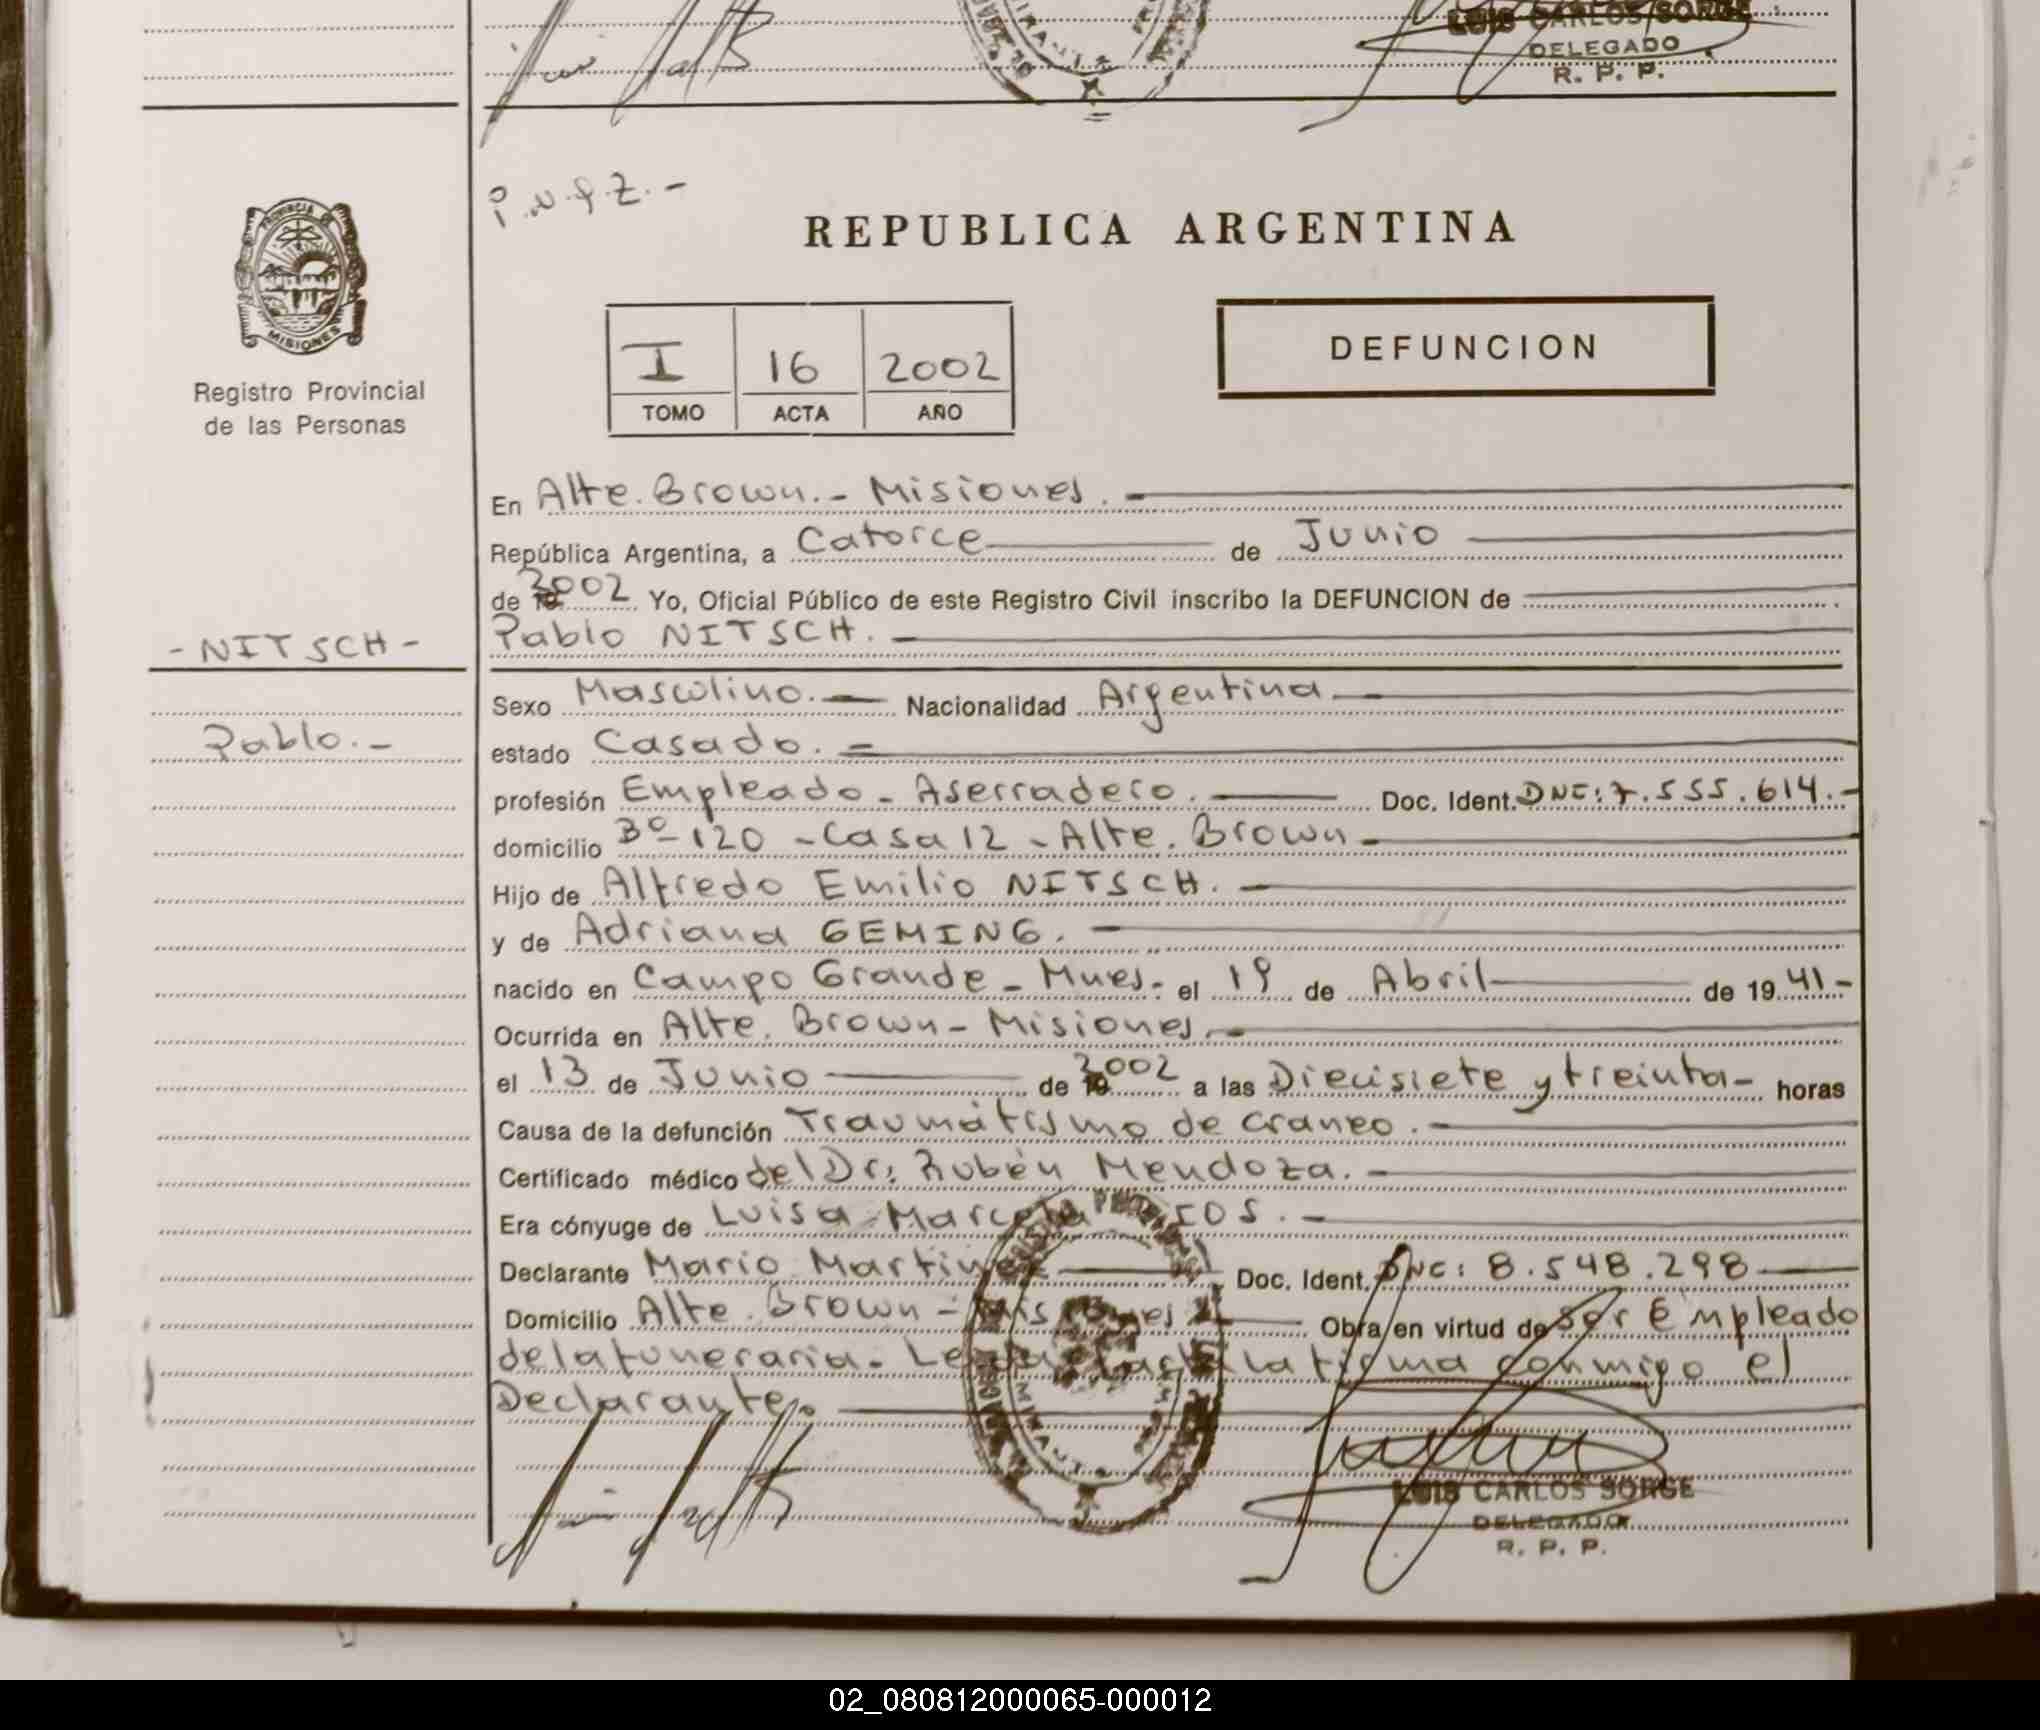 LUIS CARLOS SORGE
DELEGADO
R. P. P.
PROVINCIA DE
MISIONES
Registro Provincial
de las Personas
REPUBLICA ARGENTINA
I 16 2002
TOMO ACTA AÑO
DEFUNCION
En Alte. Brown.- Misiones.-
República Argentina, a Catorce de Junio
de 2002 Yo, Oficial Público de este Registro Civil inscribo la DEFUNCION de
- NITSCH - Pablo NITSCH.-
Sexo Masculino.- Nacionalidad Argentina
Pablo.-
estado Casado.=
profesión Empleado - Aserradero. Doc. Ident. DNI: 7.555.614.-
domicilio Bº 120 - Casa 12 - Alte. Brown-
Hijo de Alfredo Emilio NITSCH.-
y de Adriana GEMING.-
nacido en Campo Grande - Mnes.- el 19 de Abril de 1941-
Ocurrida en Alte. Brown - Misiones.-
el 13 de Junio de 2002 a las Diecisiete y treinta- horas
Causa de la defunción Traumátismo de craneo.-
Certificado médico del Dr: Rubén Mendoza.-
Era cónyuge de Luisa Marcela
Declarante Mario Martinez Doc. Ident. DNI: 8.548.298
Domicilio Alte. Brown - Misiones Obra en virtud de ser Empleado
de la funeraria. Leida el acta la firma conmigo el
Declarante.
LUIS CARLOS SORGE
DELEGADO
R. P. P.
02_080812000065-000012